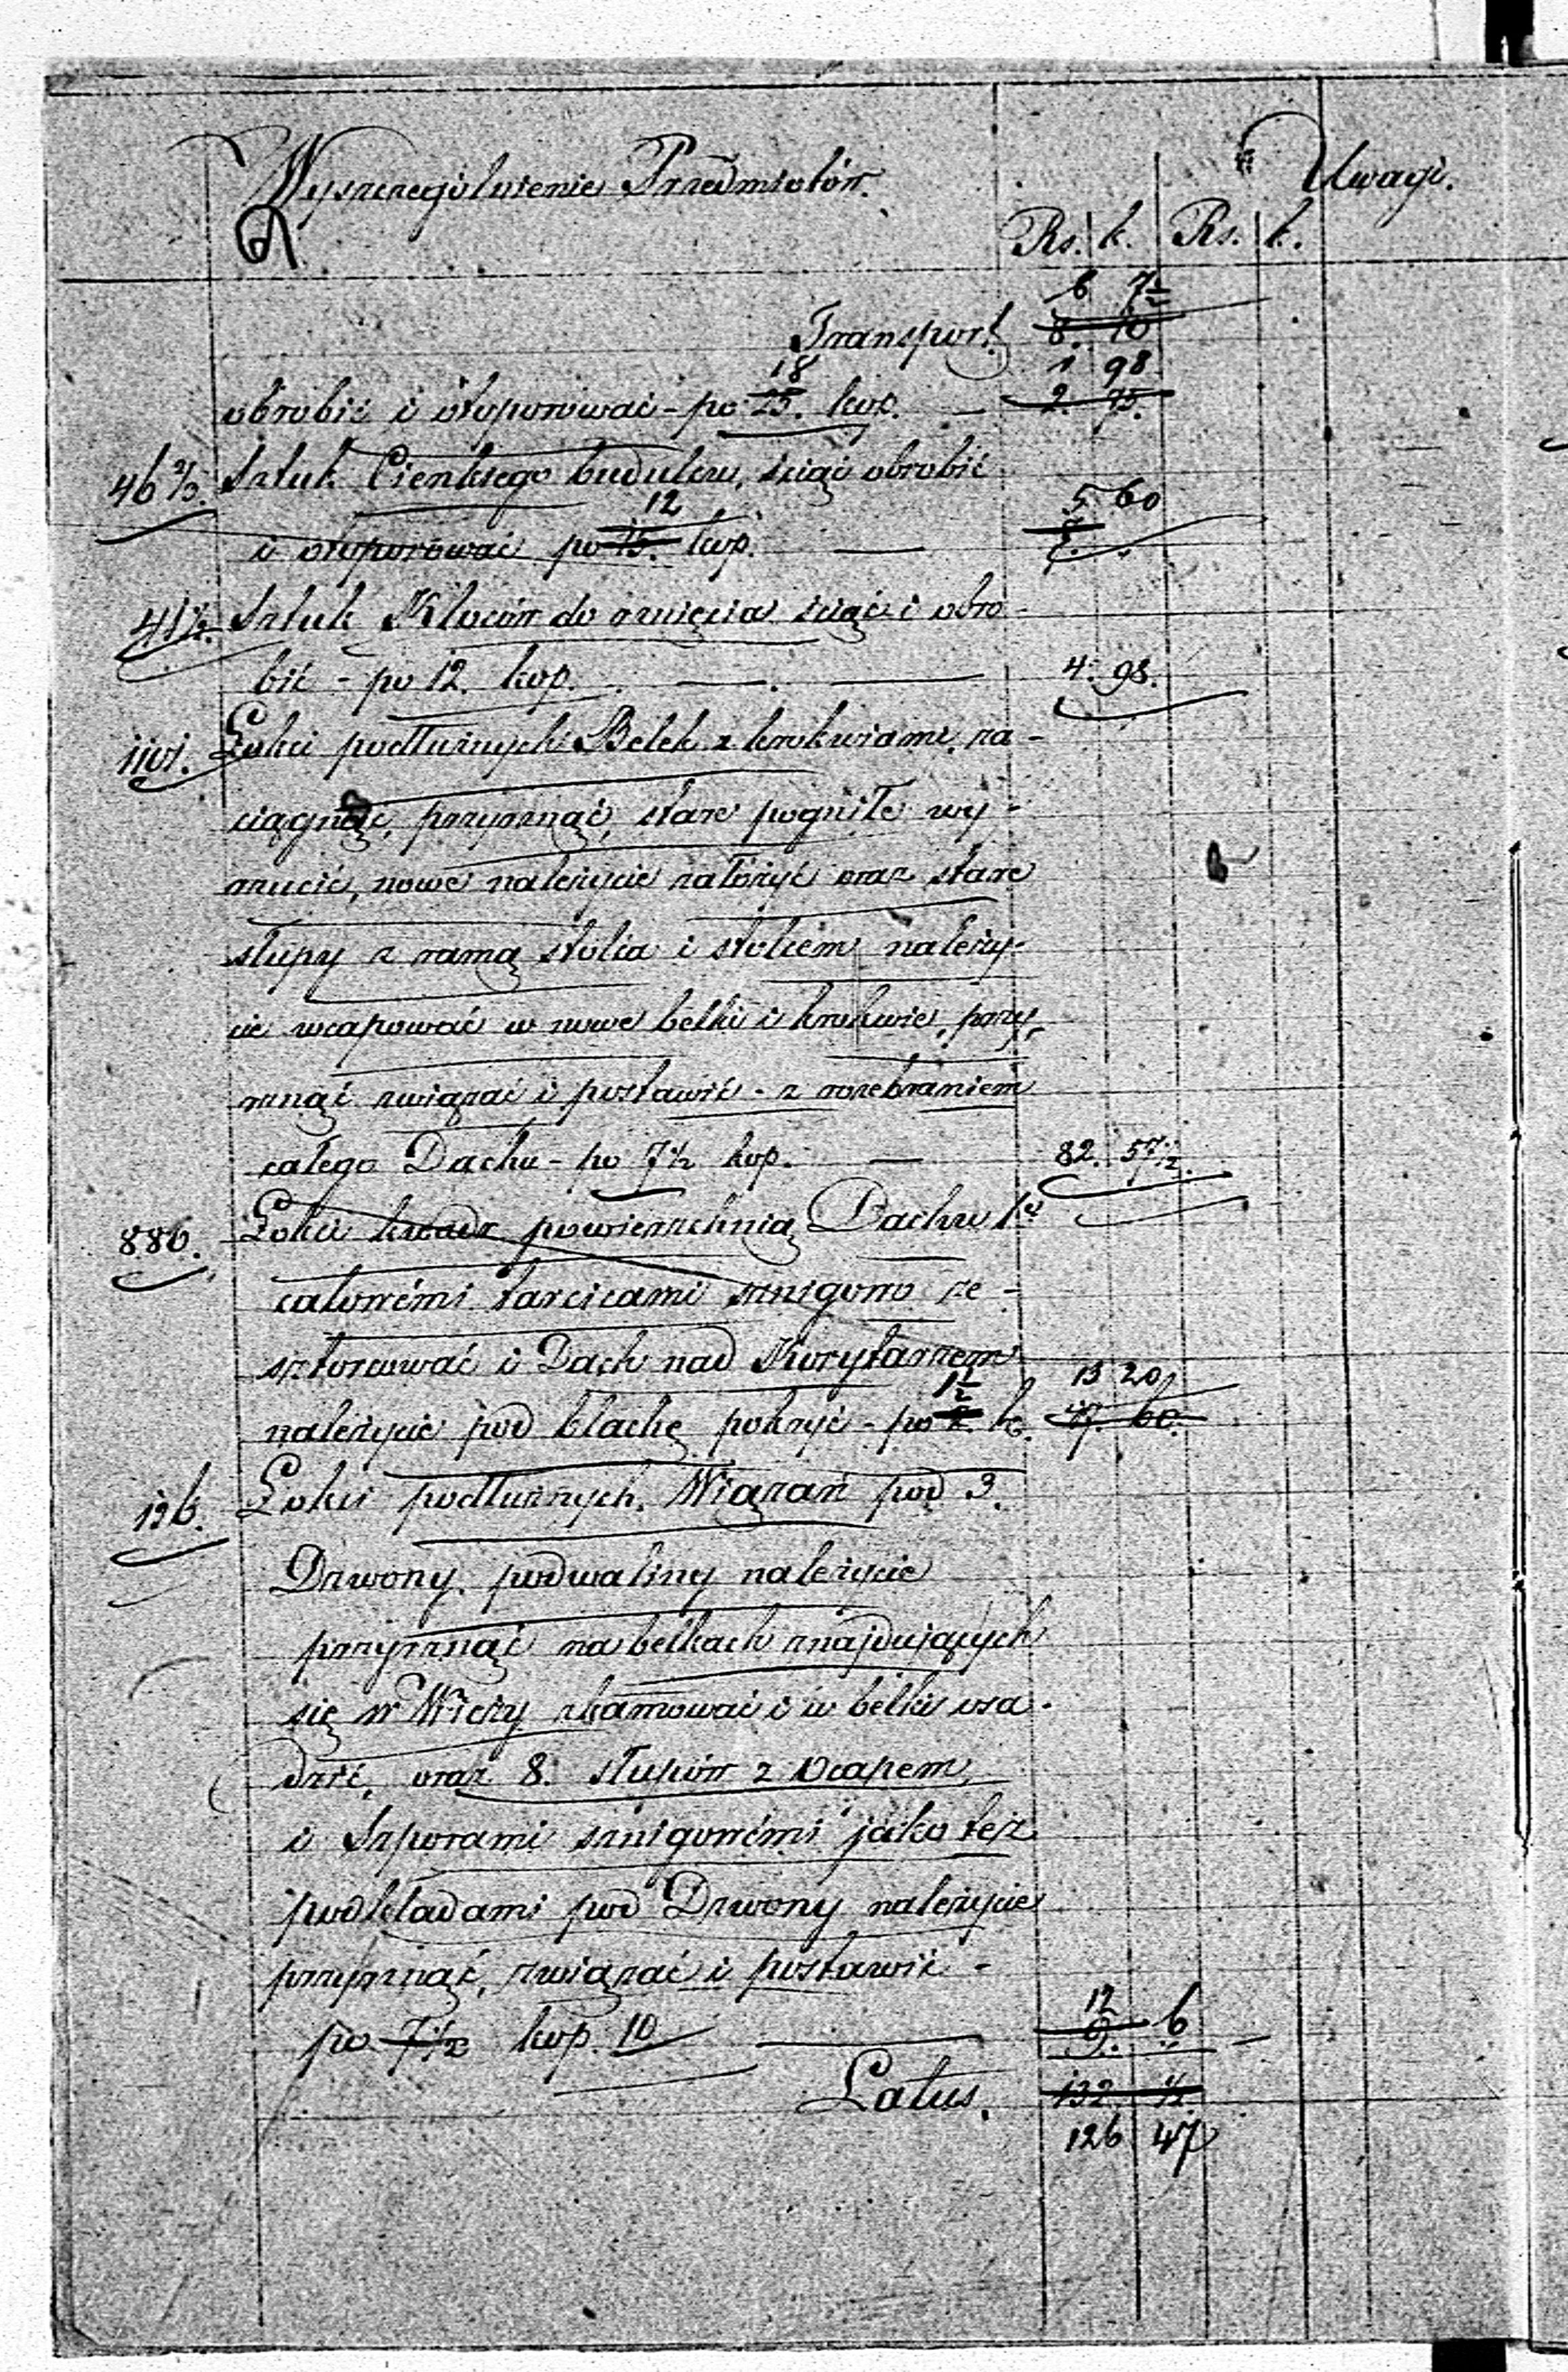 Wyszczególnienie Przedmiotów. Uwagi.
Rs. k. Rs. k.
6 7½
Transport 8. 10
18 1 98
obrobić i otoporować - po 25. kop. — 2. 75.
46⅔. Sztuk Cienkiego budulcu, ściąć obrobić
12 5 60
i otoporować po 15. kop. — 7. „
41½. Sztuk Kloców do rznięcia ściąć i obro-
bić - po 12. kop. — . — 4. 98.
1101. Łokci podłużnych Belek z krokwiami, za-
ciągnąć, przyrznąć, stare pogniłe wy-
rzucić, nowe należycie założyć oraz stare
słupy z ramą stolca i stolcem należy-
cie wczapować w nowe belki i krokwie, przy-
rznąć związać i postawić - z rozebraniem
całego Dachu - po 7½ kop. — 82. 57½.
880. Łokci kwadr powierzchnią Dachu 1½
calowémi tarcicami sznigowo ze-
sztorcować i Dach nad Kurytarzem
1½ 13 20
należycie pod blachę pokryć - po 2. k. 17. 60.
126. Łokci podłużnych, Wiązań pod 3.
Dzwony, podwaliny należycie
przyrznąć na belkach znajdujących
się w Wieży zkamować i w belki osa-
dzić, oraz 8. słupów z Oczapem,
i Szporami sznigowémi jako też
podkładami pod Dzwony należycie
przyrznąć, związać i postawić -
12 6
po 7½ kop. 10 — 9. „
Latus. 132. ½.
126 47